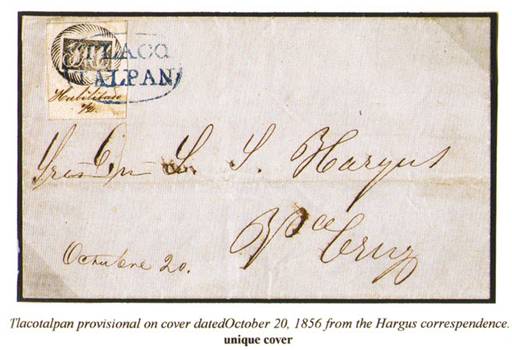 TLACO
ALPAN
Habilitado
Sres
S. S. Hargus
Octubre 20.
Tlacotalpan provisional on cover datedOctober 20, 1856 from the Hargus correspendence.
unique cover